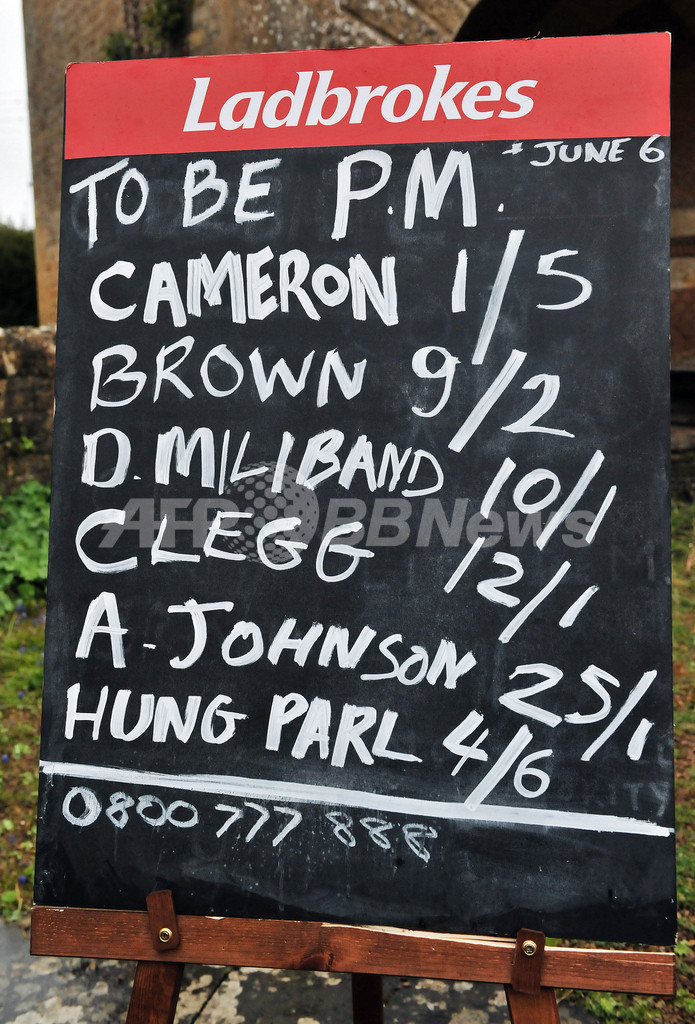 Ladbrokes
* JUNE 6
TO BE P.M.
CAMERON 1/5
BROWN 9/2
D. MILIBAND 10/1
AFP BBNews
CLEGG 12/1
A. JOHNSON 25/1
HUNG PARL 4/6
0800 777 888